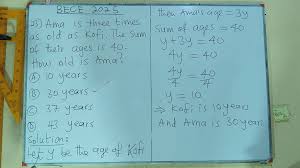 BECE 2025
23) Ama is three times
as old as Kofi. The Sum
of their ages is 40.
How old is Ama?
A 10 years
B 30 years
C 37 years
D 43 years
Solution:
Let y be the age of Kofi
then Ama's age = 3y
Sum of ages = 40
y + 3y = 40
4y = 40
4y/4 = 40/4
y = 10
⇒ Kofi is 10 years
And Ama is 30 years